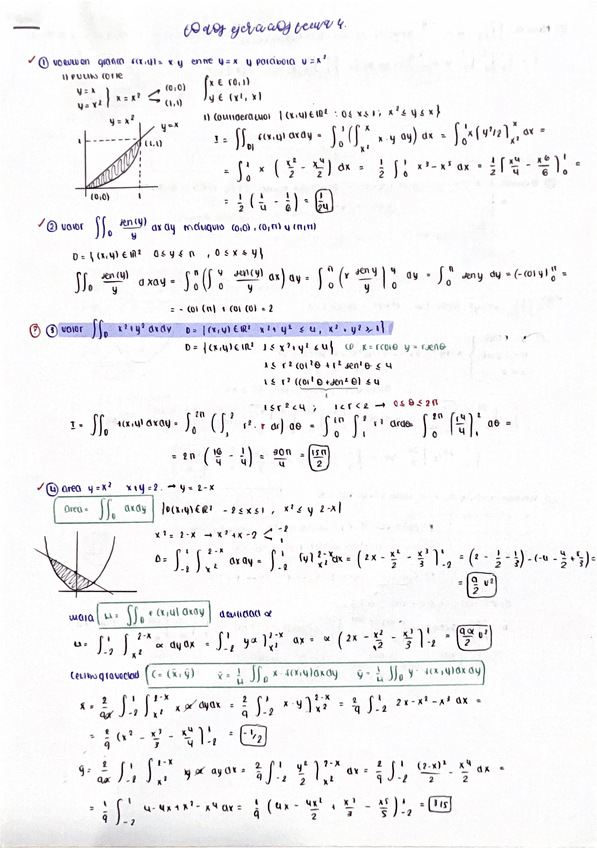 ① volumen gráfica f(x,y) = xy entre y=x y parábola y=x²
1) Punto corte
y=x
y=x² } x=x² < (0,0) (1,1)
{ x ∈ (0,1)
y ∈ (x², x)
y=x²
y=x
(1,1)
1
(0,0)
1
{(x,y) ∈ ℝ² : 0≤x≤1; x²≤y≤x}
I = ∬_D f(x,y) dxdy = ∫₀¹ (∫_{x²}^x x·y dy) dx = ∫₀¹ x [y²/2]_{x²}^x dx =
= ∫₀¹ x (x²/2 − x⁴/2) dx = 1/2 ∫₀¹ x³−x⁵ dx = 1/2 [x⁴/4 − x⁶/6]₀¹ =
= 1/2 (1/4 − 1/6) = 1/24
② valor ∬_D sen(y)/y dxdy (0,0), (0,π) y (π,π)
D = {(x,y) ∈ ℝ² 0≤y≤π, 0≤x≤y}
∬_D sen(y)/y dxdy = ∫₀^π (∫₀^y sen(y)/y dx) dy = ∫₀^π (x sen y/y)₀^y dy = ∫₀^π sen y dy = (−cos y)₀^π =
= −cos(π) + cos(0) = 2
? ③ valor ∬_D x²+y² dxdy D = {(x,y) ∈ ℝ² x²+y² ≤ 4, x²+y² ≥ 1}
D = {(x,y) ∈ ℝ² 1≤x²+y²≤4} x=rcosθ y=rsenθ
1≤ r²cos²θ + r²sen²θ ≤4
1≤ r² (cos²θ+sen²θ) ≤4
1
1≤r²<4 ; 1<r<2 → 0≤θ≤2π
I = ∬_D f(x,y) dxdy = ∫₀^{2π} (∫₁² r²·r dr) dθ = ∫₀^{2π} ∫₁² r³ drdθ = ∫₀^{2π} [r⁴/4]₁² dθ =
= 2π (16/4 − 1/4) = 30π/4 = 15π/2
④ area y=x² x+y=2. → y=2-x
Area = ∬_D dxdy
{D(x,y) ∈ ℝ² −2≤x≤1, x²≤y 2-x}
x² = 2-x → x²+x−2 < −2 1
D = ∫₋₂¹ ∫_{x²}^{2-x} dxdy = ∫₋₂¹ (y)_{x²}^{2-x} dx = (2x − x²/2 − x³/3)₋₂¹ = (2 − 1/2 − 1/3) − (−4 − 4/2 + 8/3) =
= 9/2 u²
masa M = ∬_D f(x,y) dxdy densidad α
M = ∫₋₂¹ ∫_{x²}^{2-x} α dydx = ∫₋₂¹ yα]_{x²}^{2-x} dx = α (2x − x²/2 − x³/3)₋₂¹ = 9α/2 u²
centro gravedad C = (x̄, ȳ) x̄ = 1/M ∬_D x·f(x,y) dxdy ȳ = 1/M ∬_D y·f(x,y) dxdy
x̄ = 2/9α ∫₋₂¹ ∫_{x²}^{2-x} x α dydx = 2/9 ∫₋₂¹ x·y]_{x²}^{2-x} = 2/9 ∫₋₂¹ 2x−x²−x³ dx =
= 2/9 (x² − x³/3 − x⁴/4)₋₂¹ = −1/2
ȳ = 2/9α ∫₋₂¹ ∫_{x²}^{2-x} y α dydx = 2/9 ∫₋₂¹ y²/2]_{x²}^{2-x} dx = 2/9 ∫₋₂¹ (2-x)²/2 − x⁴/2 dx =
= 1/9 ∫₋₂¹ 4−4x+x²−x⁴ dx = 1/9 (4x − 4x²/2 + x³/3 − x⁵/5)₋₂¹ = 8/5